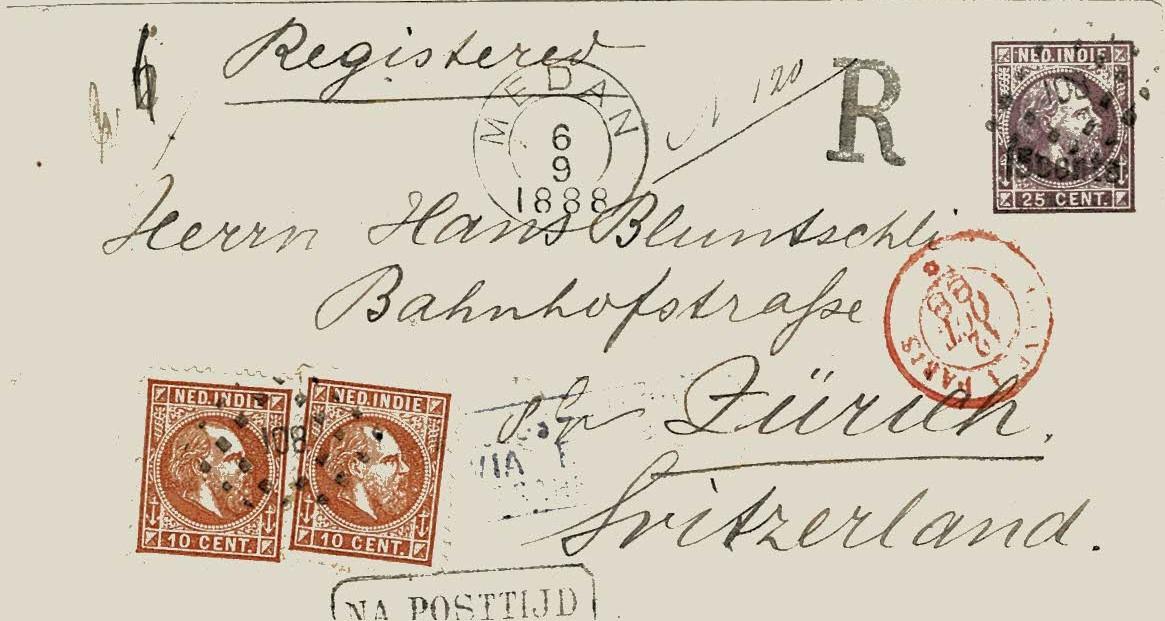 Registered
MEDAN
6
9
1888
N 120
R
NED. INDIE
108
15 cents
25 CENT.
Herrn Hans Bluntschli
Bahnhofstraße
Zürich.
Switzerland.
PARIS
NED. INDIE
10 CENT.
108
NED. INDIE
10 CENT.
VIA
NA POSTTIJD